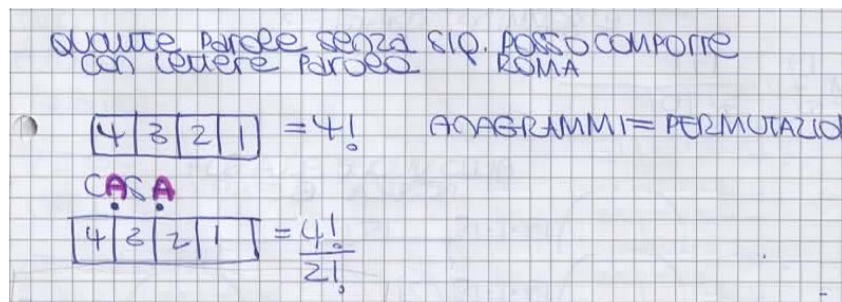 QUANTE PAROLE SENZA SIG. POSSO COMPORRE
CON LETTERE PAROLA ROMA
4 3 2 1 = 4! ANAGRAMMI = PERMUTAZIO
CASA
4 3 2 1 = 4!
2!